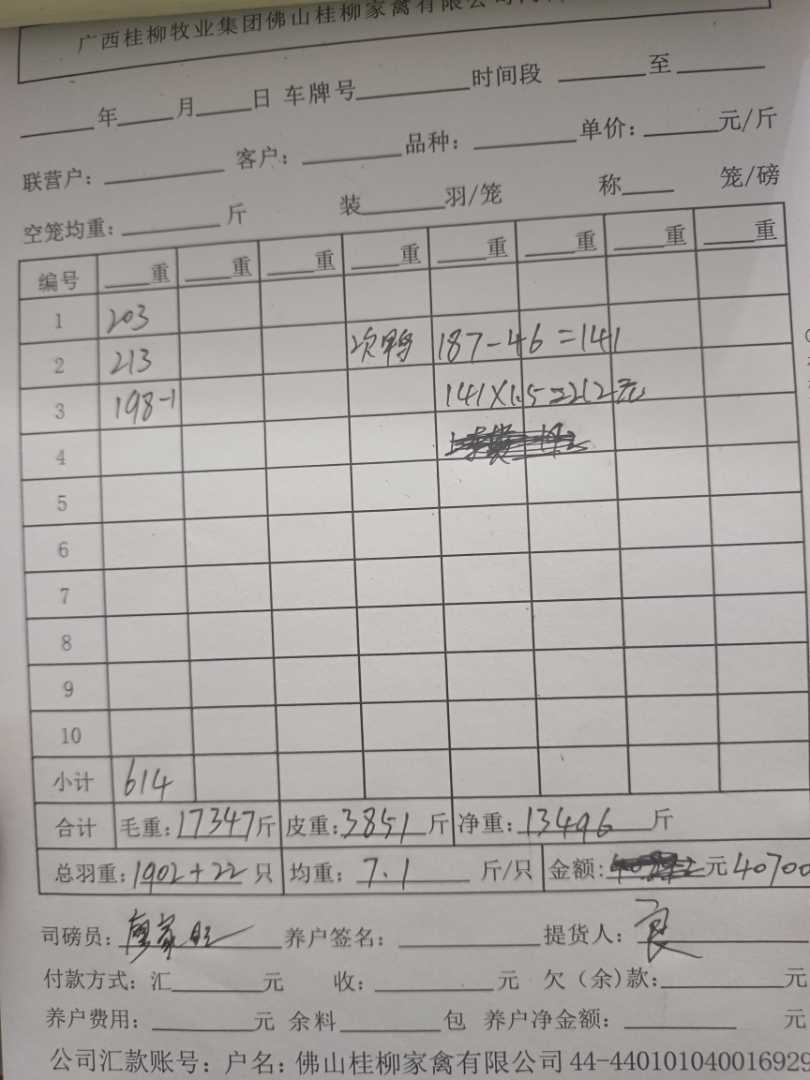 广西桂柳牧业集团佛山桂柳家禽有限公司
年 月 日 车牌号 时间段 至
联营户： 客户： 品种： 单价： 元/斤
空笼均重： 斤 装 羽/笼 称 笼/磅
编号 重 重 重 重 重 重 重 重
1 203
2 213 次鸭 187-46=141
3 198-1 141X1.5=212元
4
5
6
7
8
9
10
小计 614
合计 毛重：17347斤 皮重：3851斤 净重：13496斤
总羽重：1902+22只 均重：7.1斤/只 金额： 元40700
司磅员：廖家旺 养户签名： 提货人：良
付款方式：汇 元 收： 元 欠（余）款： 元
养户费用： 元 余料 包 养户净金额： 元
公司汇款账号：户名：佛山桂柳家禽有限公司 44-440101040016929